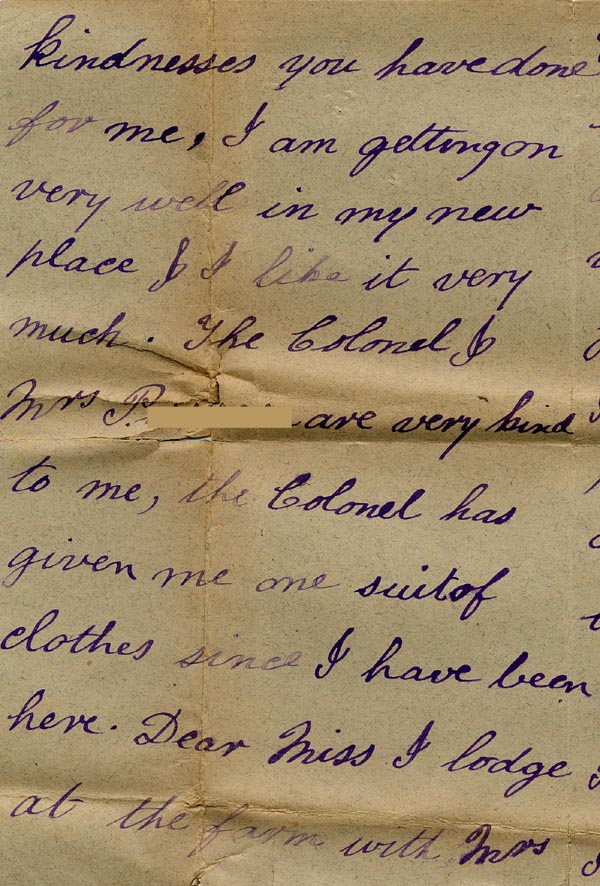 kindnesses you have done
for me, I am getting on
very well in my new
place & I like it very
much. The Colonel &
Mrs are very kind
to me, the Colonel has
given me one suit of
clothes since I have been
here. Dear Miss I lodge
at the farm with Mrs